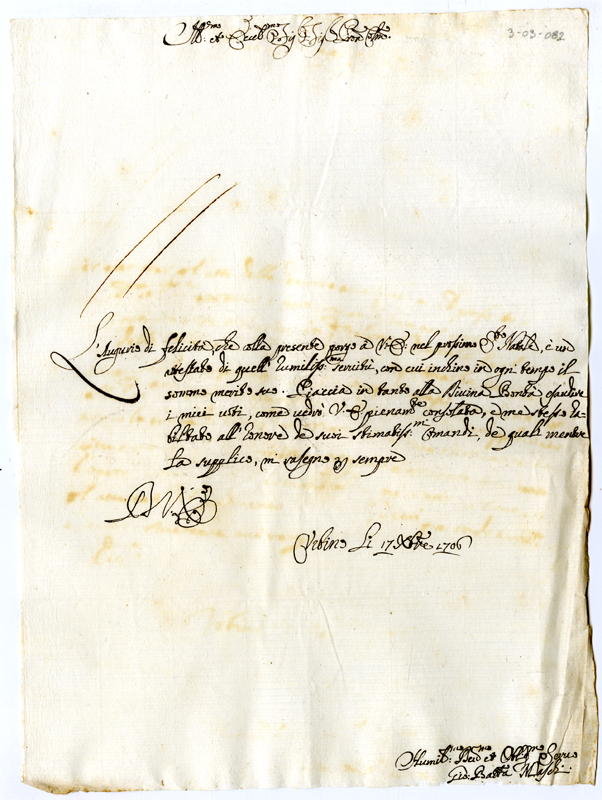 Ill:mo et Ecc:mo Sig: Sig: Pron Col:mo
3-03-082
L'Augurio di felicità, che colla presente porgo à V.E: nel prossimo S:to Natale, è un
attestato di quell'humiliss:ma servitù, con cui inchino in ogni tempo il
sommo merito suo. Piaccia in tanto alla Divina Bontà esaudire
i miei voti, come vedrò V.E. pienam:te consolata, e me stesso ha-
bilitato all'honore de suoi stimatiss:mi Comandi, de quali mentre
la supplico, mi rasegno per sempre
D V E
Urbino Li 17 Xbre 1706
Humil:mo Dev:mo et Obl:mo Servo
Gio: Batta